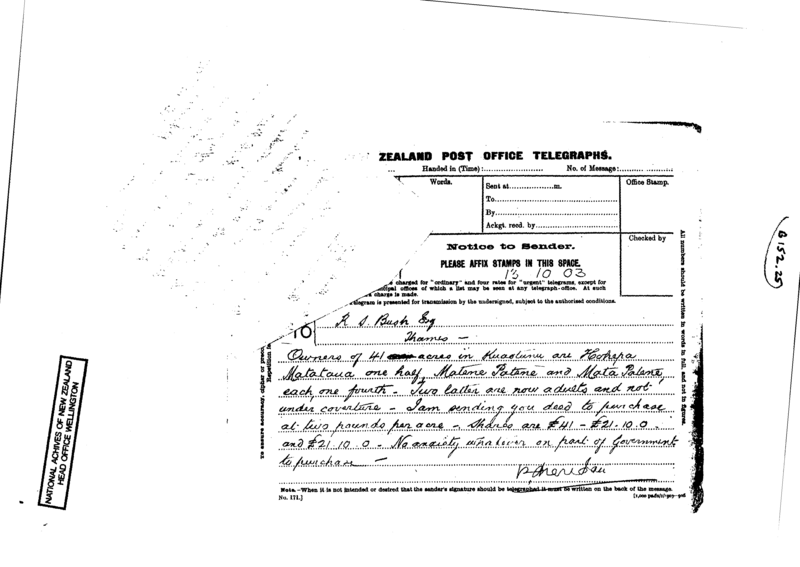 ZEALAND POST OFFICE TELEGRAPHS.
Handed in (Time): No. of Message:
Words.
Sent at m.
To
By
Ackgt. recd. by
Office Stamp.
Notice to Sender.
PLEASE AFFIX STAMPS IN THIS SPACE.
13 10 03
Checked by
charged for "ordinary" and four rates for "urgent" telegrams, except for
offices of which a list may be seen at any telegraph-office. At such
charge is made.
telegram is presented for transmission by the undersigned, subject to the authorised conditions.
TO
R S Bush Esq
Thames —
Owners of 41 acres in Kuaotunu are Hohepa
Mataitaua one half, Matene Patene and Mata Patene,
each one fourth - Two latter are now adults and not
under coverture - I am sending you deed to purchase
at two pounds per acre - Shares are £41 - £21.10.0.
and £21.10.0 - No anxiety whatever on part of Government
to purchase —
P Sheridan
Note.—When it is not intended or desired that the sender's signature should be telegraphed it must be written on the back of the message.
No. 171.]
All numbers should be written in words in full, and not in figures.
to assure accuracy, cipher or
Repetition
B152.25
NATIONAL ACHIVES OF NEW ZEALAND
HEAD OFFICE WELLINGTON